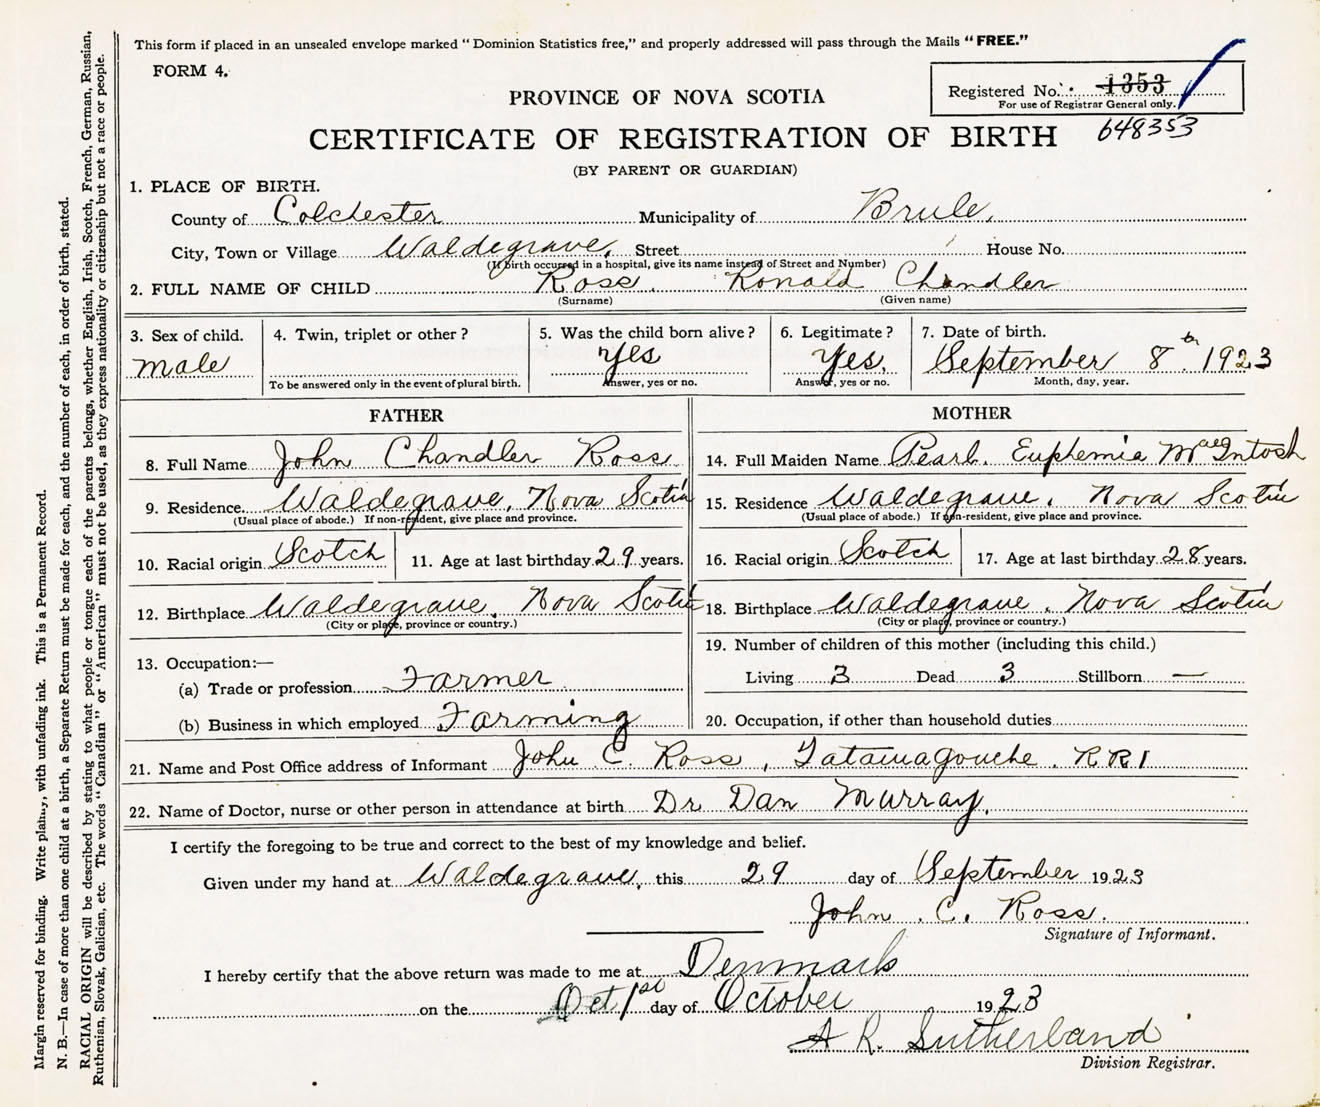 This form if placed in an unsealed envelope marked "Dominion Statistics free," and properly addressed will pass through the Mails "FREE."
FORM 4.
Registered No. 1353
For use of Registrar General only.
648353
PROVINCE OF NOVA SCOTIA
CERTIFICATE OF REGISTRATION OF BIRTH
(BY PARENT OR GUARDIAN)
1. PLACE OF BIRTH.
County of Colchester Municipality of Brule.
City, Town or Village Waldegrave. Street House No.
(If birth occurred in a hospital, give its name instead of Street and Number)
2. FULL NAME OF CHILD Ross. Ronald Chandler
(Surname) (Given name)
3. Sex of child. 4. Twin, triplet or other? 5. Was the child born alive? 6. Legitimate? 7. Date of birth.
male Yes Yes. September 8th. 1923
To be answered only in the event of plural birth. Answer, yes or no. Answer, yes or no. Month, day, year.
FATHER
8. Full Name John Chandler Ross
9. Residence Waldegrave, Nova Scotia
(Usual place of abode.) If non-resident, give place and province.
10. Racial origin Scotch 11. Age at last birthday 29 years.
12. Birthplace Waldegrave, Nova Scotia
(City or place, province or country.)
13. Occupation:—
(a) Trade or profession Farmer
(b) Business in which employed Farming
MOTHER
14. Full Maiden Name Pearl. Euphemia MacIntosh
15. Residence Waldegrave. Nova Scotia
(Usual place of abode.) If non-resident, give place and province.
16. Racial origin Scotch 17. Age at last birthday 28 years.
18. Birthplace Waldegrave. Nova Scotia
(City or place, province or country.)
19. Number of children of this mother (including this child.)
Living 3 Dead 3 Stillborn —
20. Occupation, if other than household duties
21. Name and Post Office address of Informant John C. Ross, Tatamagouche. RR1
22. Name of Doctor, nurse or other person in attendance at birth Dr Dan Murray.
I certify the foregoing to be true and correct to the best of my knowledge and belief.
Given under my hand at Waldegrave, this 29 day of September 1923
John. C. Ross.
Signature of Informant.
I hereby certify that the above return was made to me at Denmark
on the Oct 1st day of October 1923
A R. Sutherland
Division Registrar.
Margin reserved for binding. Write plainly, with unfading ink. This is a Permanent Record.
N. B.—In case of more than one child at a birth, a Separate Return must be made for each, and the number of each, in order of birth, stated.
RACIAL ORIGIN will be described by stating to what people or tongue each of the parents belongs, whether English, Irish, Scotch, French, German, Russian,
Ruthenian, Slovak, Galician, etc. The words "Canadian" or "American" must not be used, as they express nationality or citizenship but not a race or people.